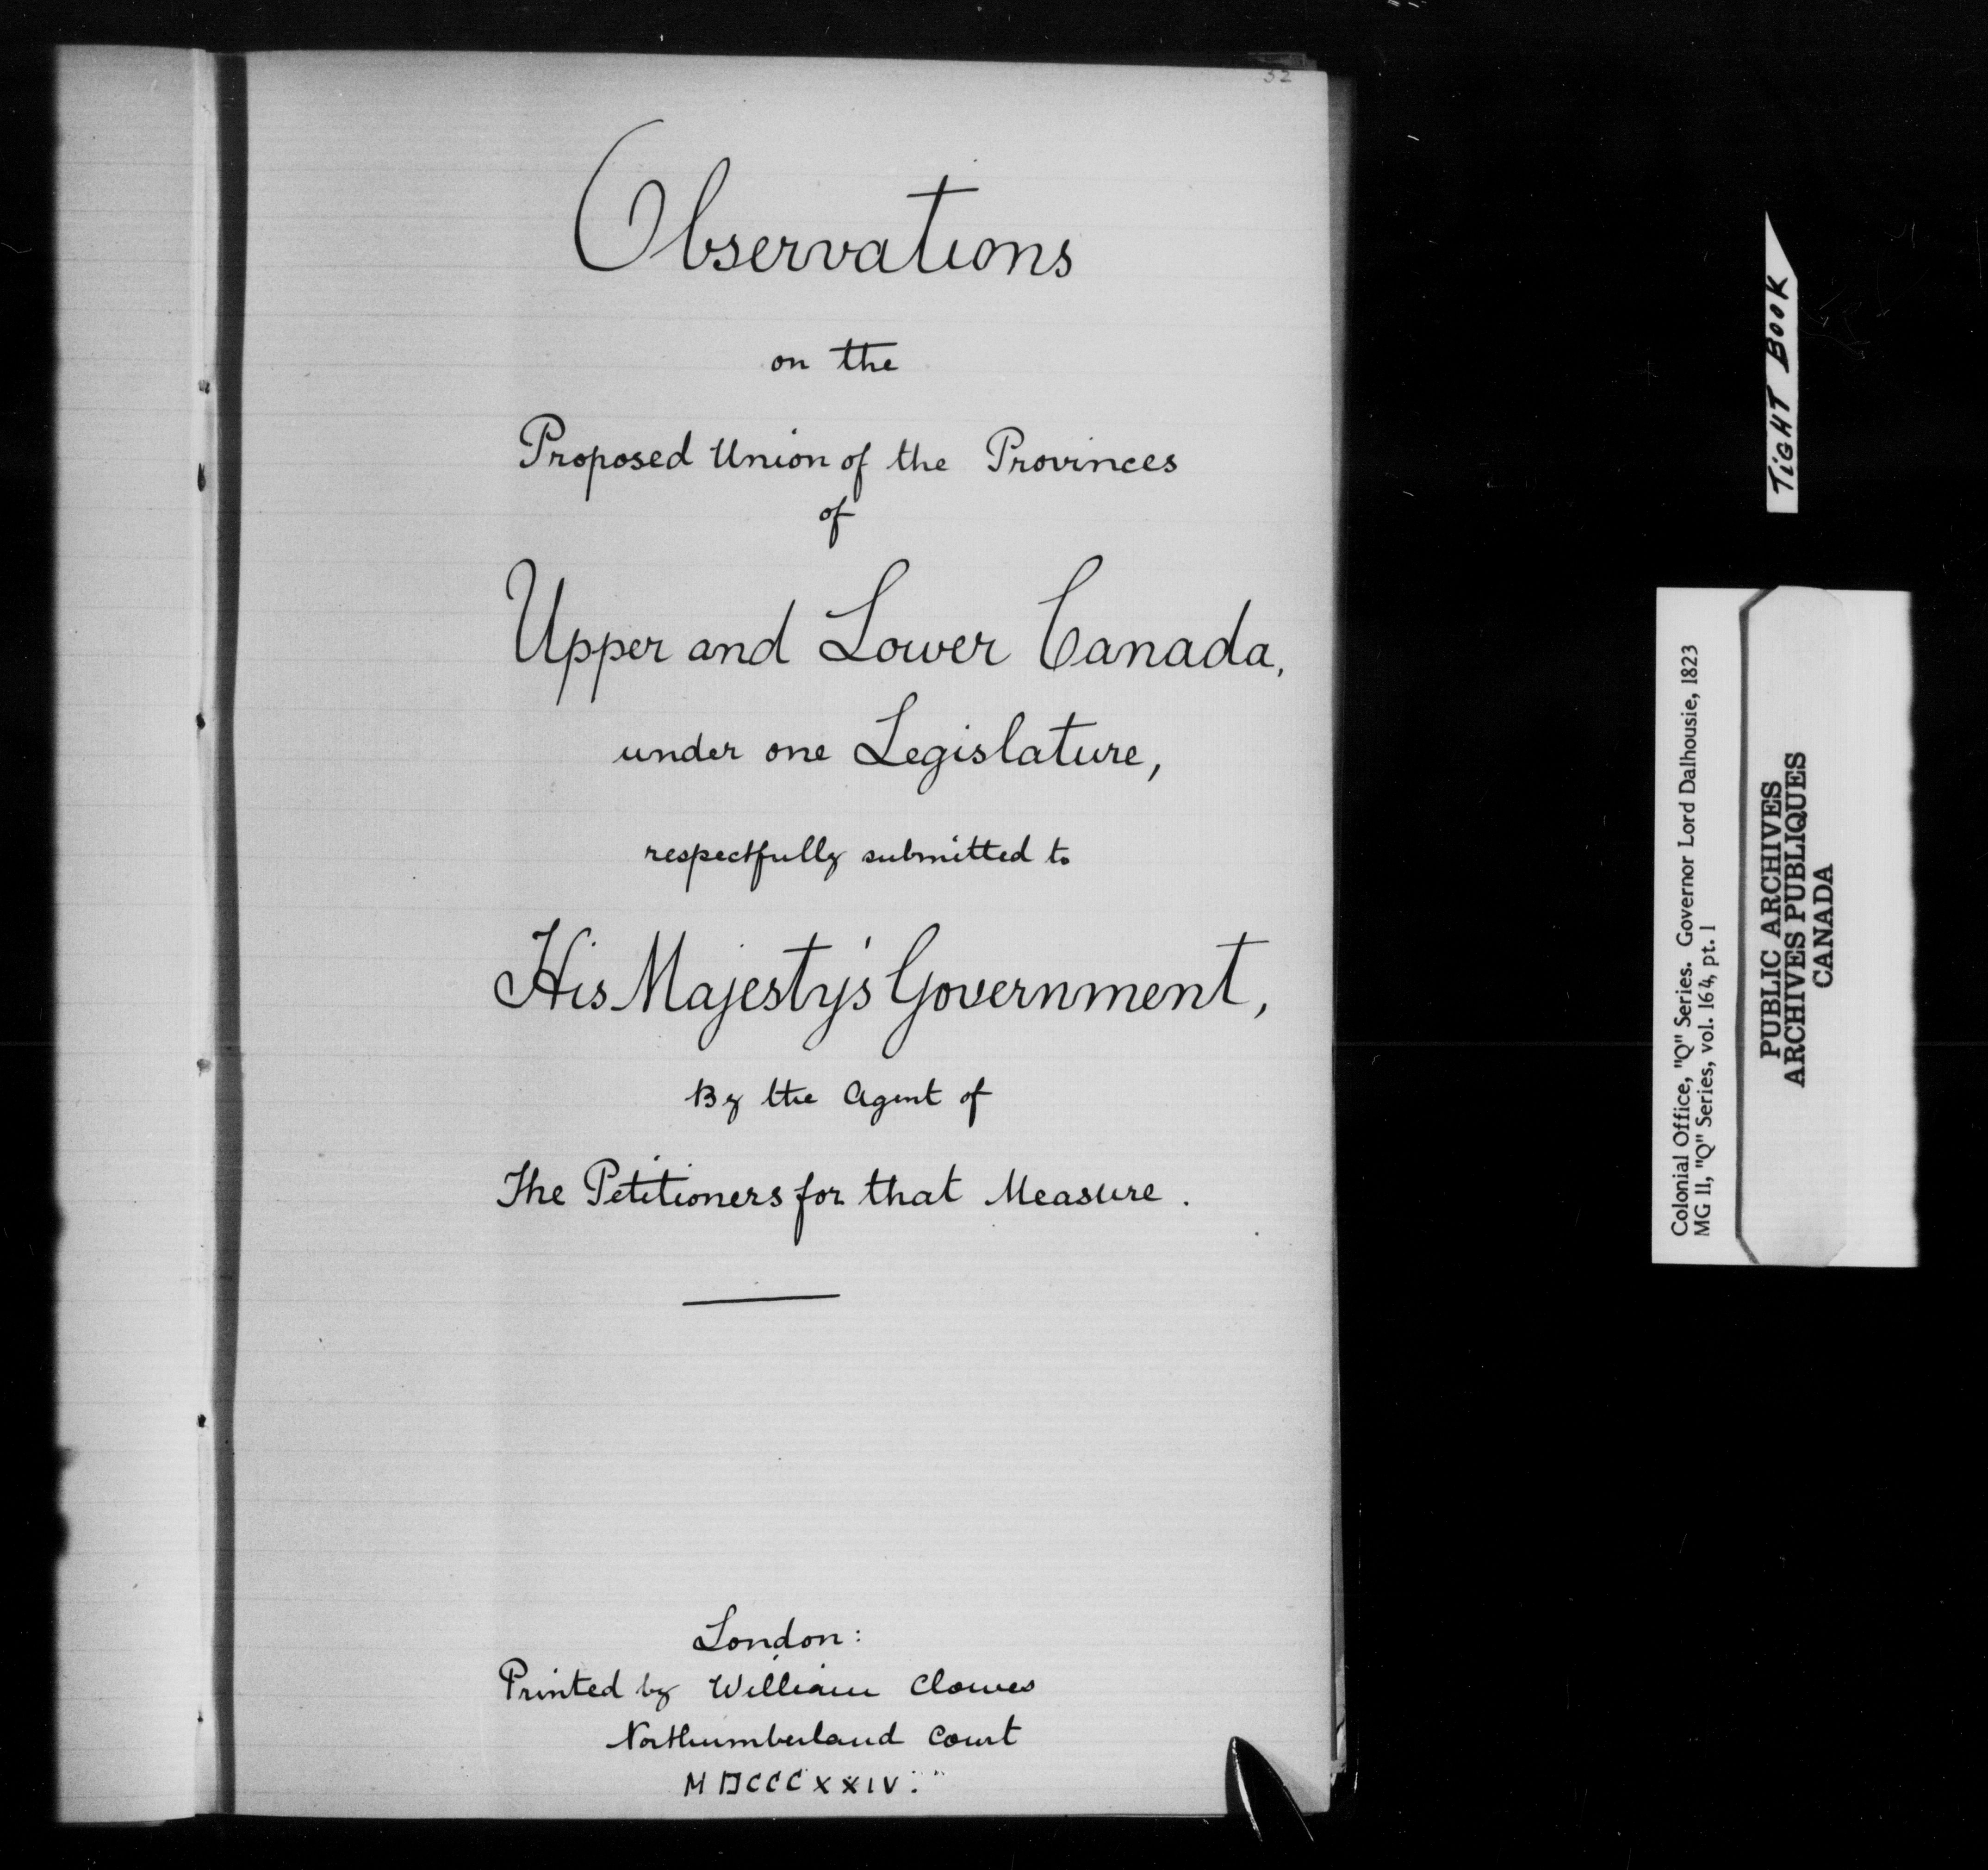 32
Observations
on the
Proposed Union of the Provinces
of
Upper and Lower Canada,
under one Legislature,
respectfully submitted to
His Majesty's Government,
By the Agent of
The Petitioners for that Measure.
London:
Printed by William Clowes
Northumberland Court
MDCCCXXIV."
TIGHT BOOK
Colonial Office, "Q" Series. Governor Lord Dalhousie, 1823
MG 11, "Q" Series, vol. 164, pt. 1
PUBLIC ARCHIVES
ARCHIVES PUBLIQUES
CANADA